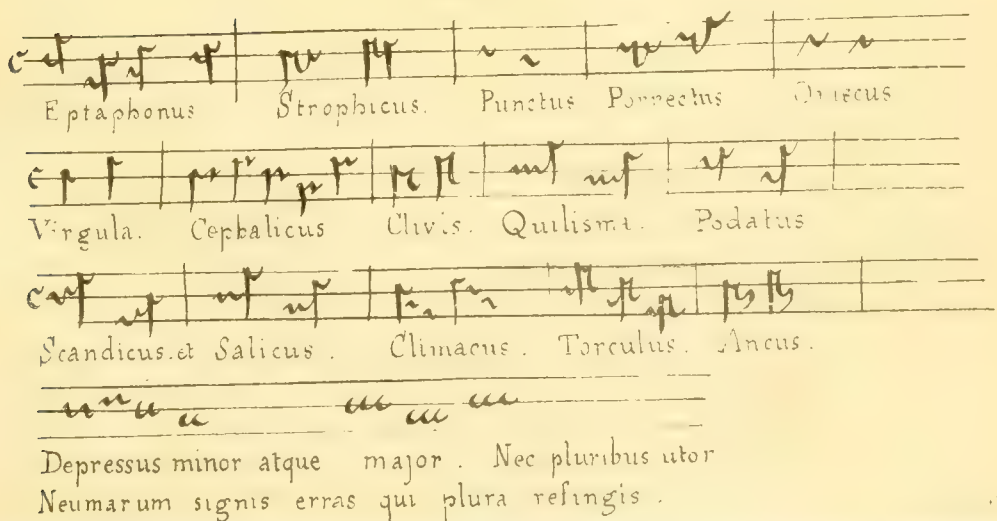 Eptaphonus Strophicus. Punctus Porrectus Oriscus
Virgula. Cephalicus Clivis. Quilisma. Podatus
Scandicus.et Salicus. Climacus. Torculus. Ancus.
Depressus minor atque major. Nec pluribus utor
Neumarum signis erras qui plura refingis.